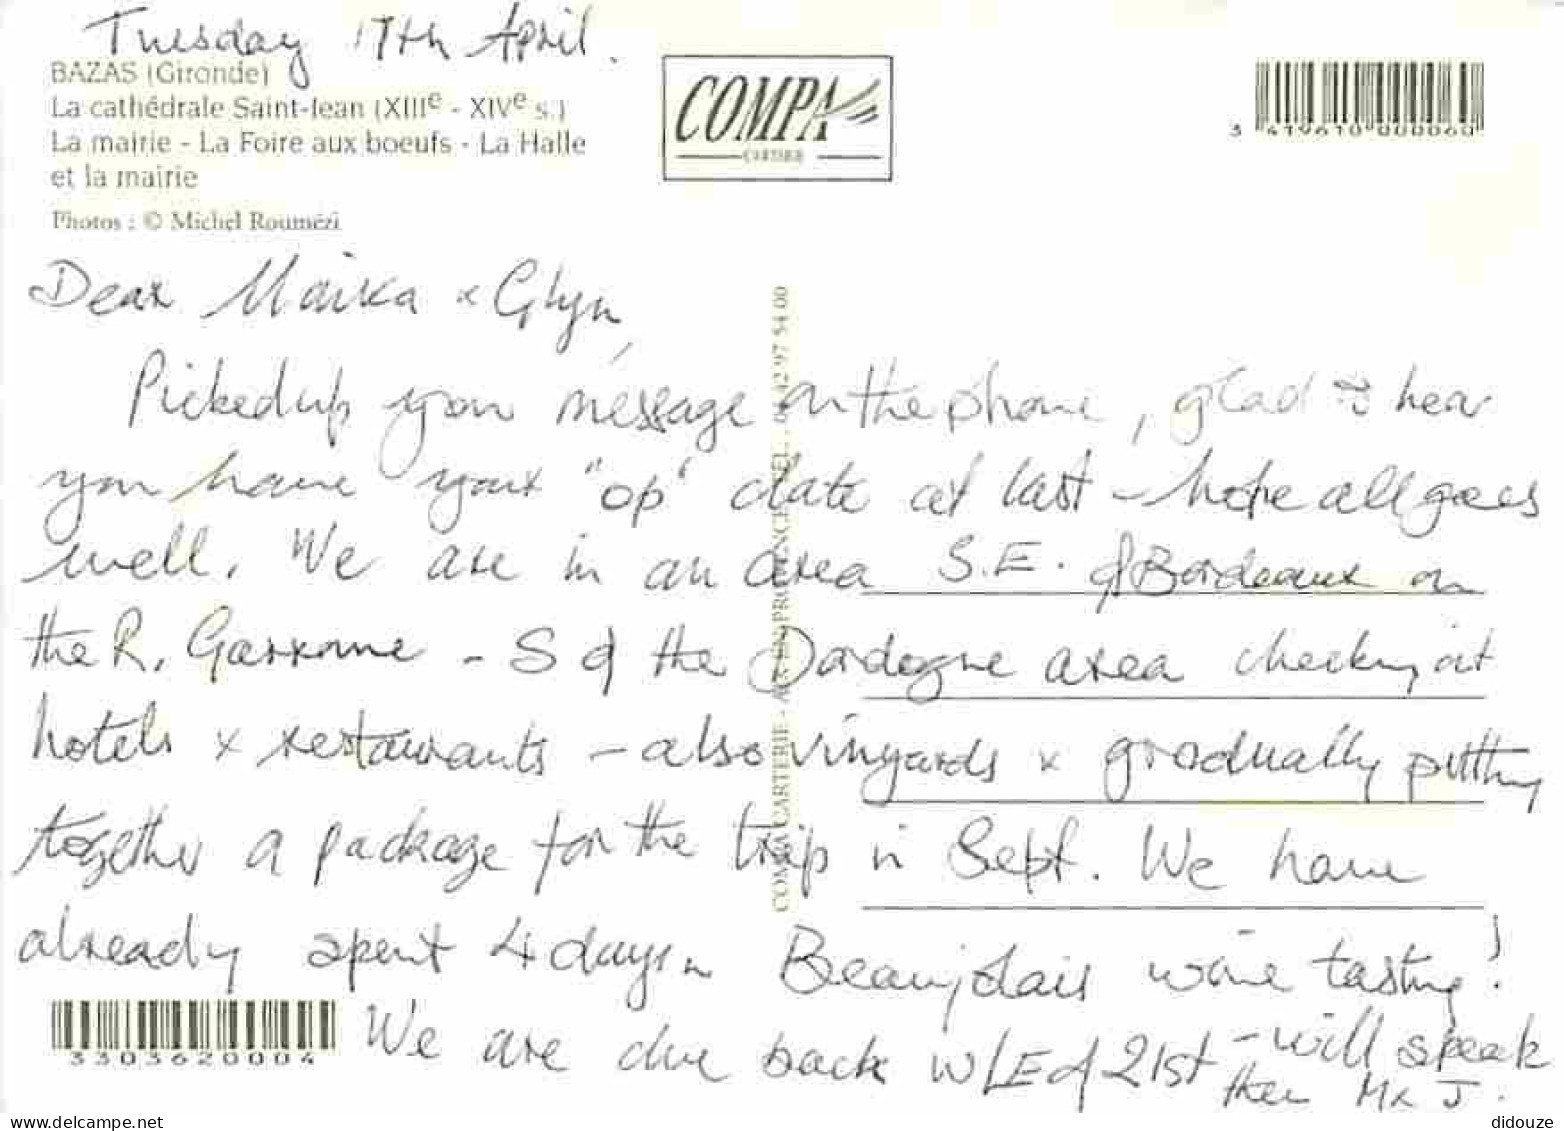 Tuesday 17th April.
BAZAS (Gironde)
La cathédrale Saint-Jean (XIIIe - XIVe s.)
La mairie - La Foire aux boeufs - La Halle
et la mairie
Photos : © Michel Roumézi
COMPA
CARTERIE
3 419610 000060
Dear Maika & Glyn,
Picked up your message on the phone, glad to hear
you have your "op" date at last - hope all goes
well. We are in an area S.E. of Bordeaux on
the R. Garronne - S of the Dordogne area checking out
hotels & restaurants - also vinyards & gradually putting
together a package for the trip in Sept. We have
already spent 4 days in Beaujolais wine tasting!
We are due back W/E of 21st - will speak
then M & J.
COMPA CARTERIE - AIX EN PROVENCE - TEL. 04 42 97 54 00
3303620004
delcampe.net
didouze